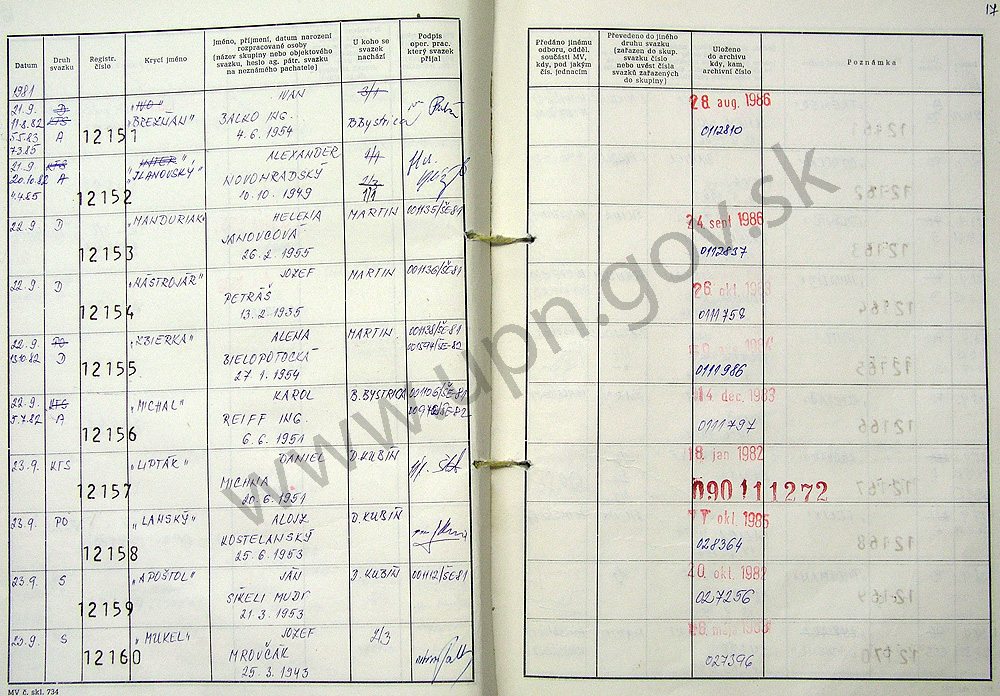 17
Datum
Druh svazku
Registr. číslo
Krycí jméno
Jméno, příjmení, datum narození
rozpracované osoby
(název skupiny nebo objektového
svazku, heslo ag. pátr. svazku
na neznámého pachatele)
U koho se
svazek
nachází
Podpis
oper. prac.
který svazek
přijal
Předáno jinému
odboru, odděl.
součásti MV,
kdy, pod jakým
čís. jednacím
Převedeno do jiného
druhu svazku
(zařazen do skup.
svazku číslo
nebo uvést čísla
svazků zařazených
do skupiny)
Uloženo
do archivu
kdy, kam,
archivní číslo
Poznámka
1981
21.9. D "IVO" IVAN 3/1 28 aug. 1986
11.8.82 KTS "BREZŇAN" BALKO ING. B Bystrica
5.5.83 A 12151 4.6.1954 0112810
7.3.85
21.9 KTS "INTER" ALEXANDER
20.10.82 A "JLANOVSKÝ" NOVOHRADSKÝ 2/3
4.4.85 12152 10.10.1949 1/1
22.9 D "MANDURIAK" HELENA MARTIN 001135/ŠE81 24 sept 1986
JANOVCOVÁ
12153 26.2.1955 0112837
22.9. D "NÁSTROJÁR" JOZEF MARTIN 001136/ŠE-81 26 okt.
PETRÁŠ
12154 13.2.1935 0111758
22.9 PO "ZBIERKA" ALENA MARTIN. 001138/ŠE-81
13.10.82 D BIELOPOTOCKÁ
12155 27.1.1954 0111986
22.9. KTS "MICHAL" KAROL B. BYSTRICA 001106/ŠE-81 14 dec. 1983
5.7.82 A REIFF ING.
12156 6.6.1951 0111797
23.9. KTS "LIPTÁK" DANIEL D.KUBÍN 18. jan 1982
MICHNA
12157 20.6.1951 090111272
23.9. PO "LANSKÝ" ALOJZ D.KUBÍN okt. 1985
KOSTELANSKÝ
12158 25.6.1953 028364
23.9. S "APOŠTOL" JÁN D.KUBÍN 001112/ŠE81 20. okt. 1982
SÍKELI MUDr
12159 21.3.1953 027256
23.9. S "MUKEL" JOZEF 2/3
MROVČÁK
12160 25.3.1943 027396
MV č. skl. 734
www.upn.gov.sk